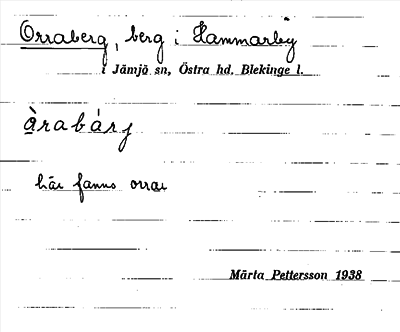 Orraberg, berg i Hammarby
i Jämjö sn, Östra hd, Blekinge l.
àrabárj
här fanns orrar
Märta Pettersson 1938